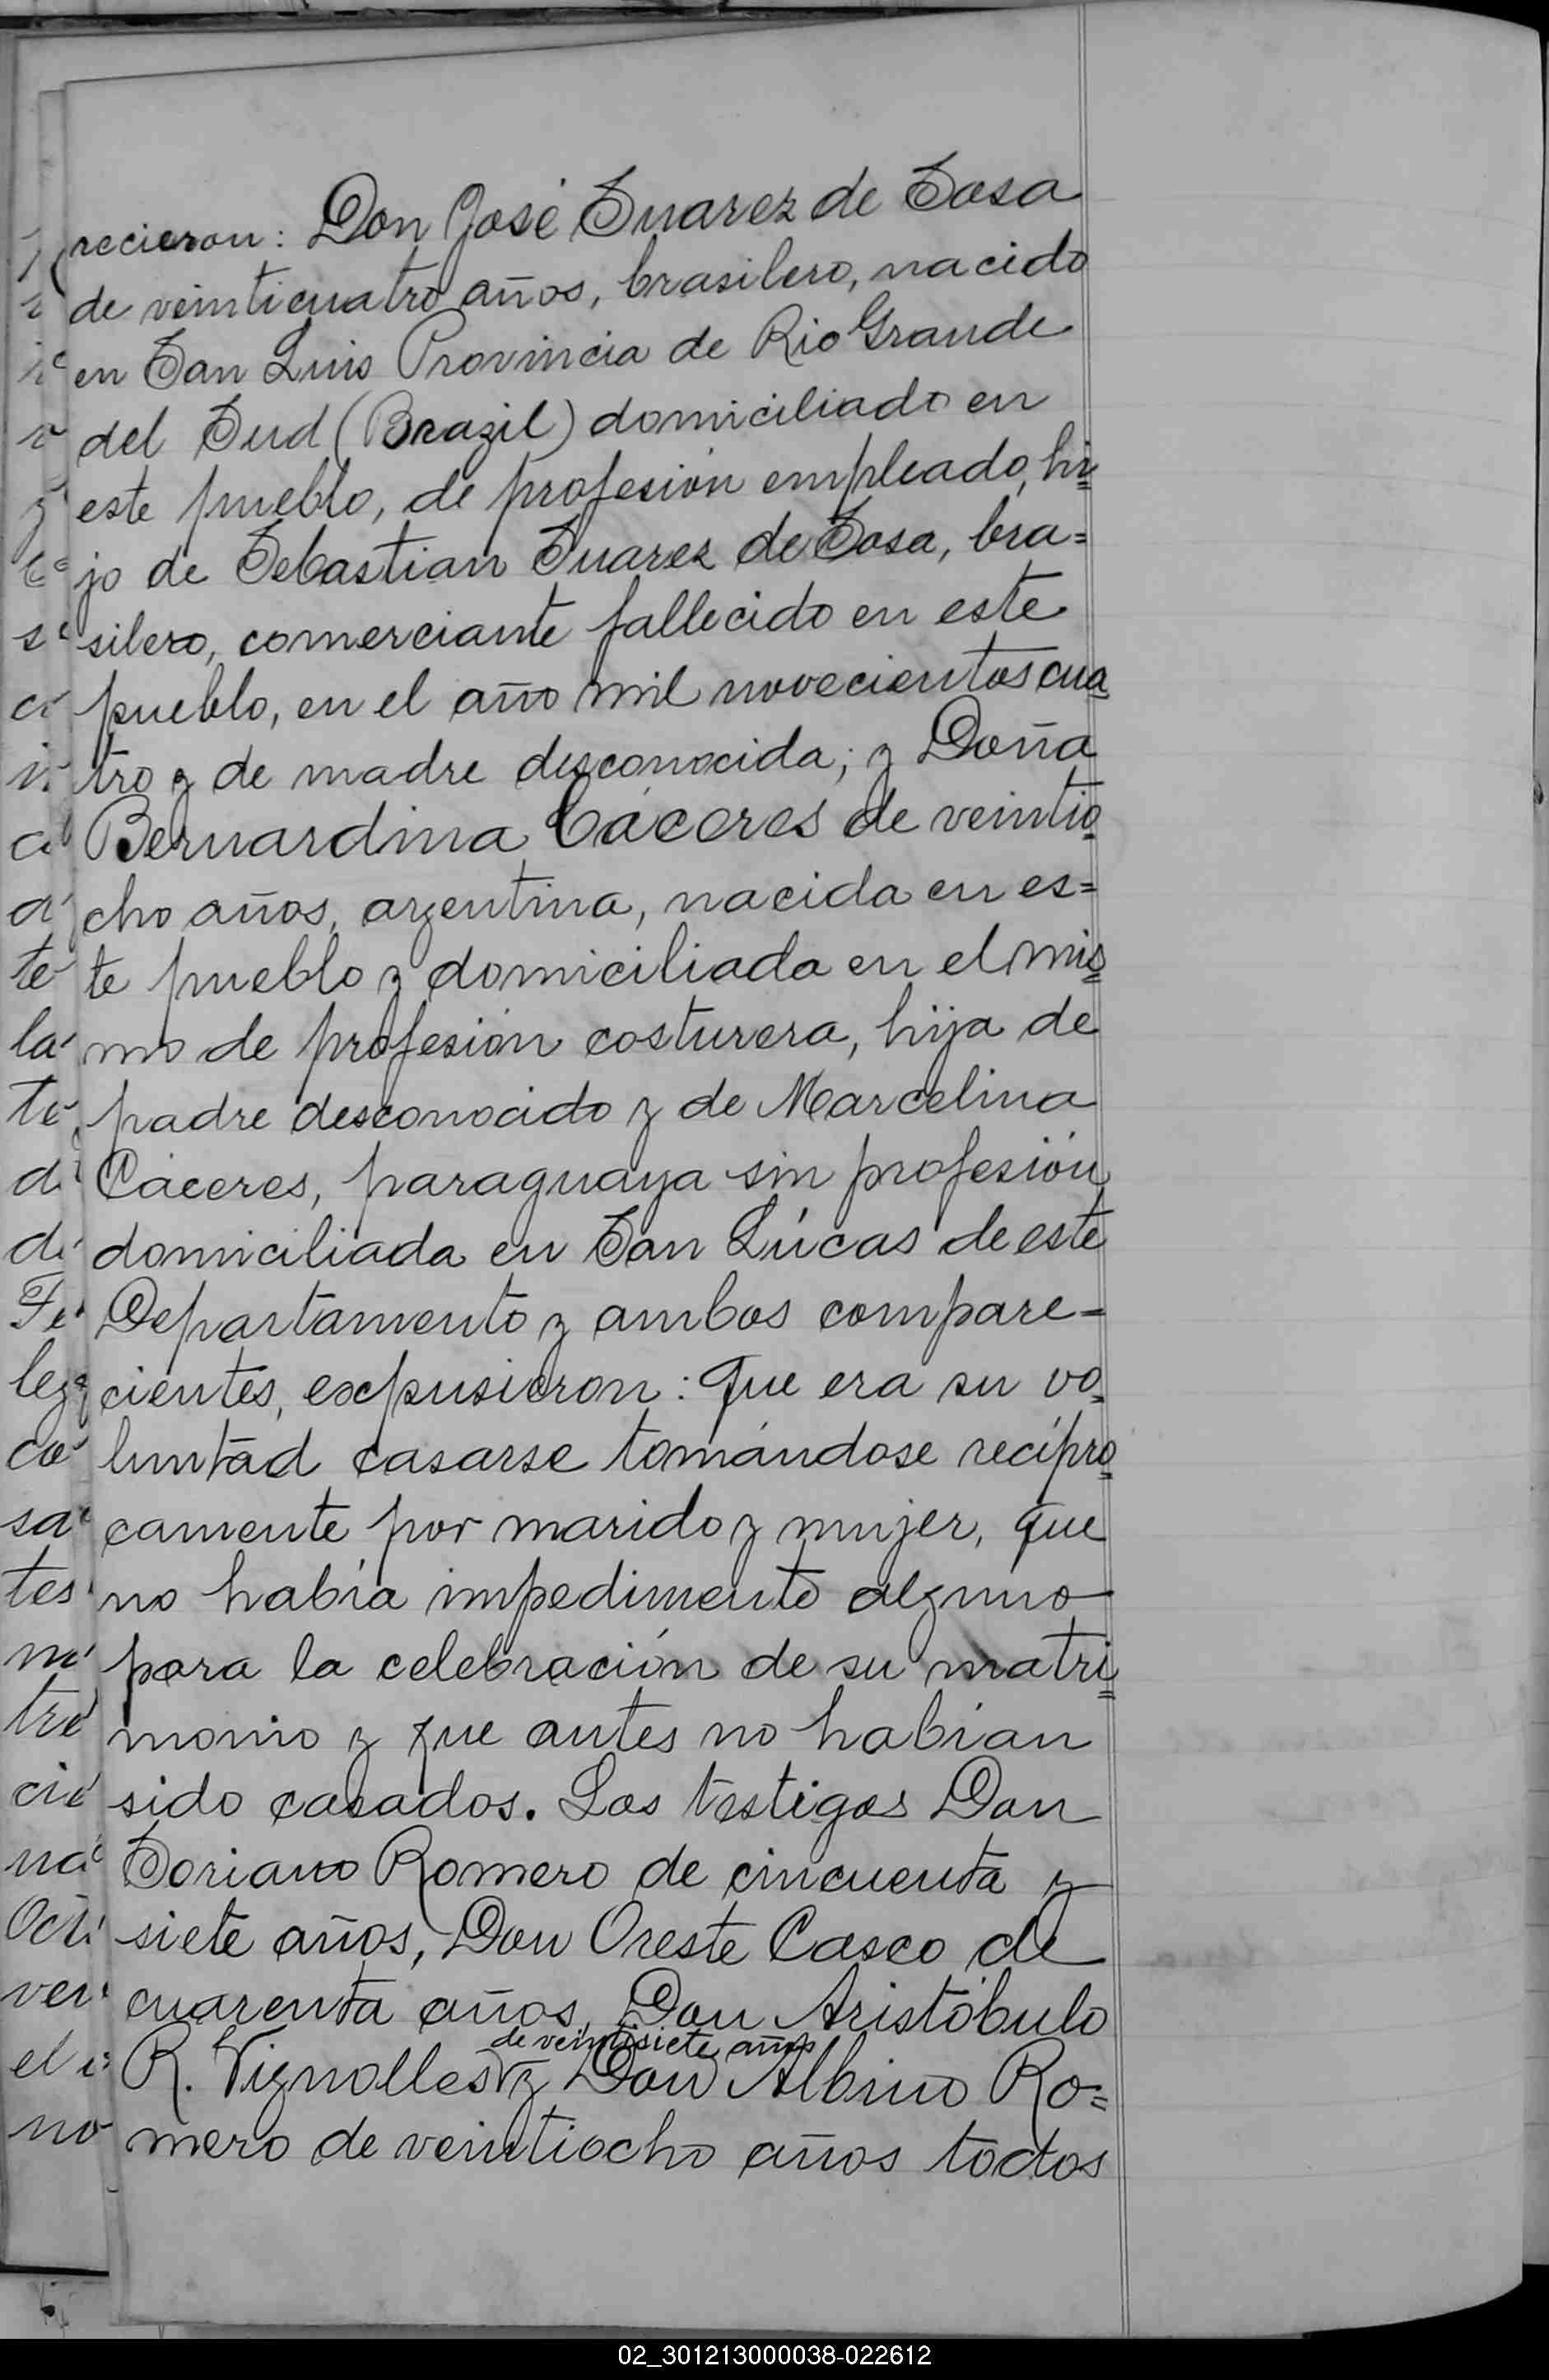 recieron: Don José Suarez de Sosa
de veinticuatro años, brasilero, nacido
en San Luis Provincia de Rio Grande
del Sud (Brazil) domiciliado en
este pueblo, de profesión empleado, hi=
jo de Sebastian Suarez de Sosa, bra=
silero, comerciante fallecido en este
pueblo, en el año mil novecientos cua
tro y de madre desconocida; y Doña
Bernardina Cáceres de veintio
cho años, argentina, nacida en es=
te pueblo y domiciliada en el mis=
mo de profesión costurera, hija de
padre desconocido y de Marcelina
Cáceres, paraguaya sin profesión
domiciliada en San Lúcas de este
Departamento y ambos compare=
cientes, expusieron: Que era su vo
luntad casarse tomándose recípro
camente por marido y mujer, que
no había impedimento alguno
para la celebración de su matri=
monio y que antes no habían
sido casados. Los testigos Don
Soriano Romero de cincuenta y
siete años, Don Oreste Casco de
cuarenta años, Don Aristóbulo
de veintisiete años
R. Vignolles y Don Albino Ro=
mero de veintiocho años todos
02_301213000038-022612